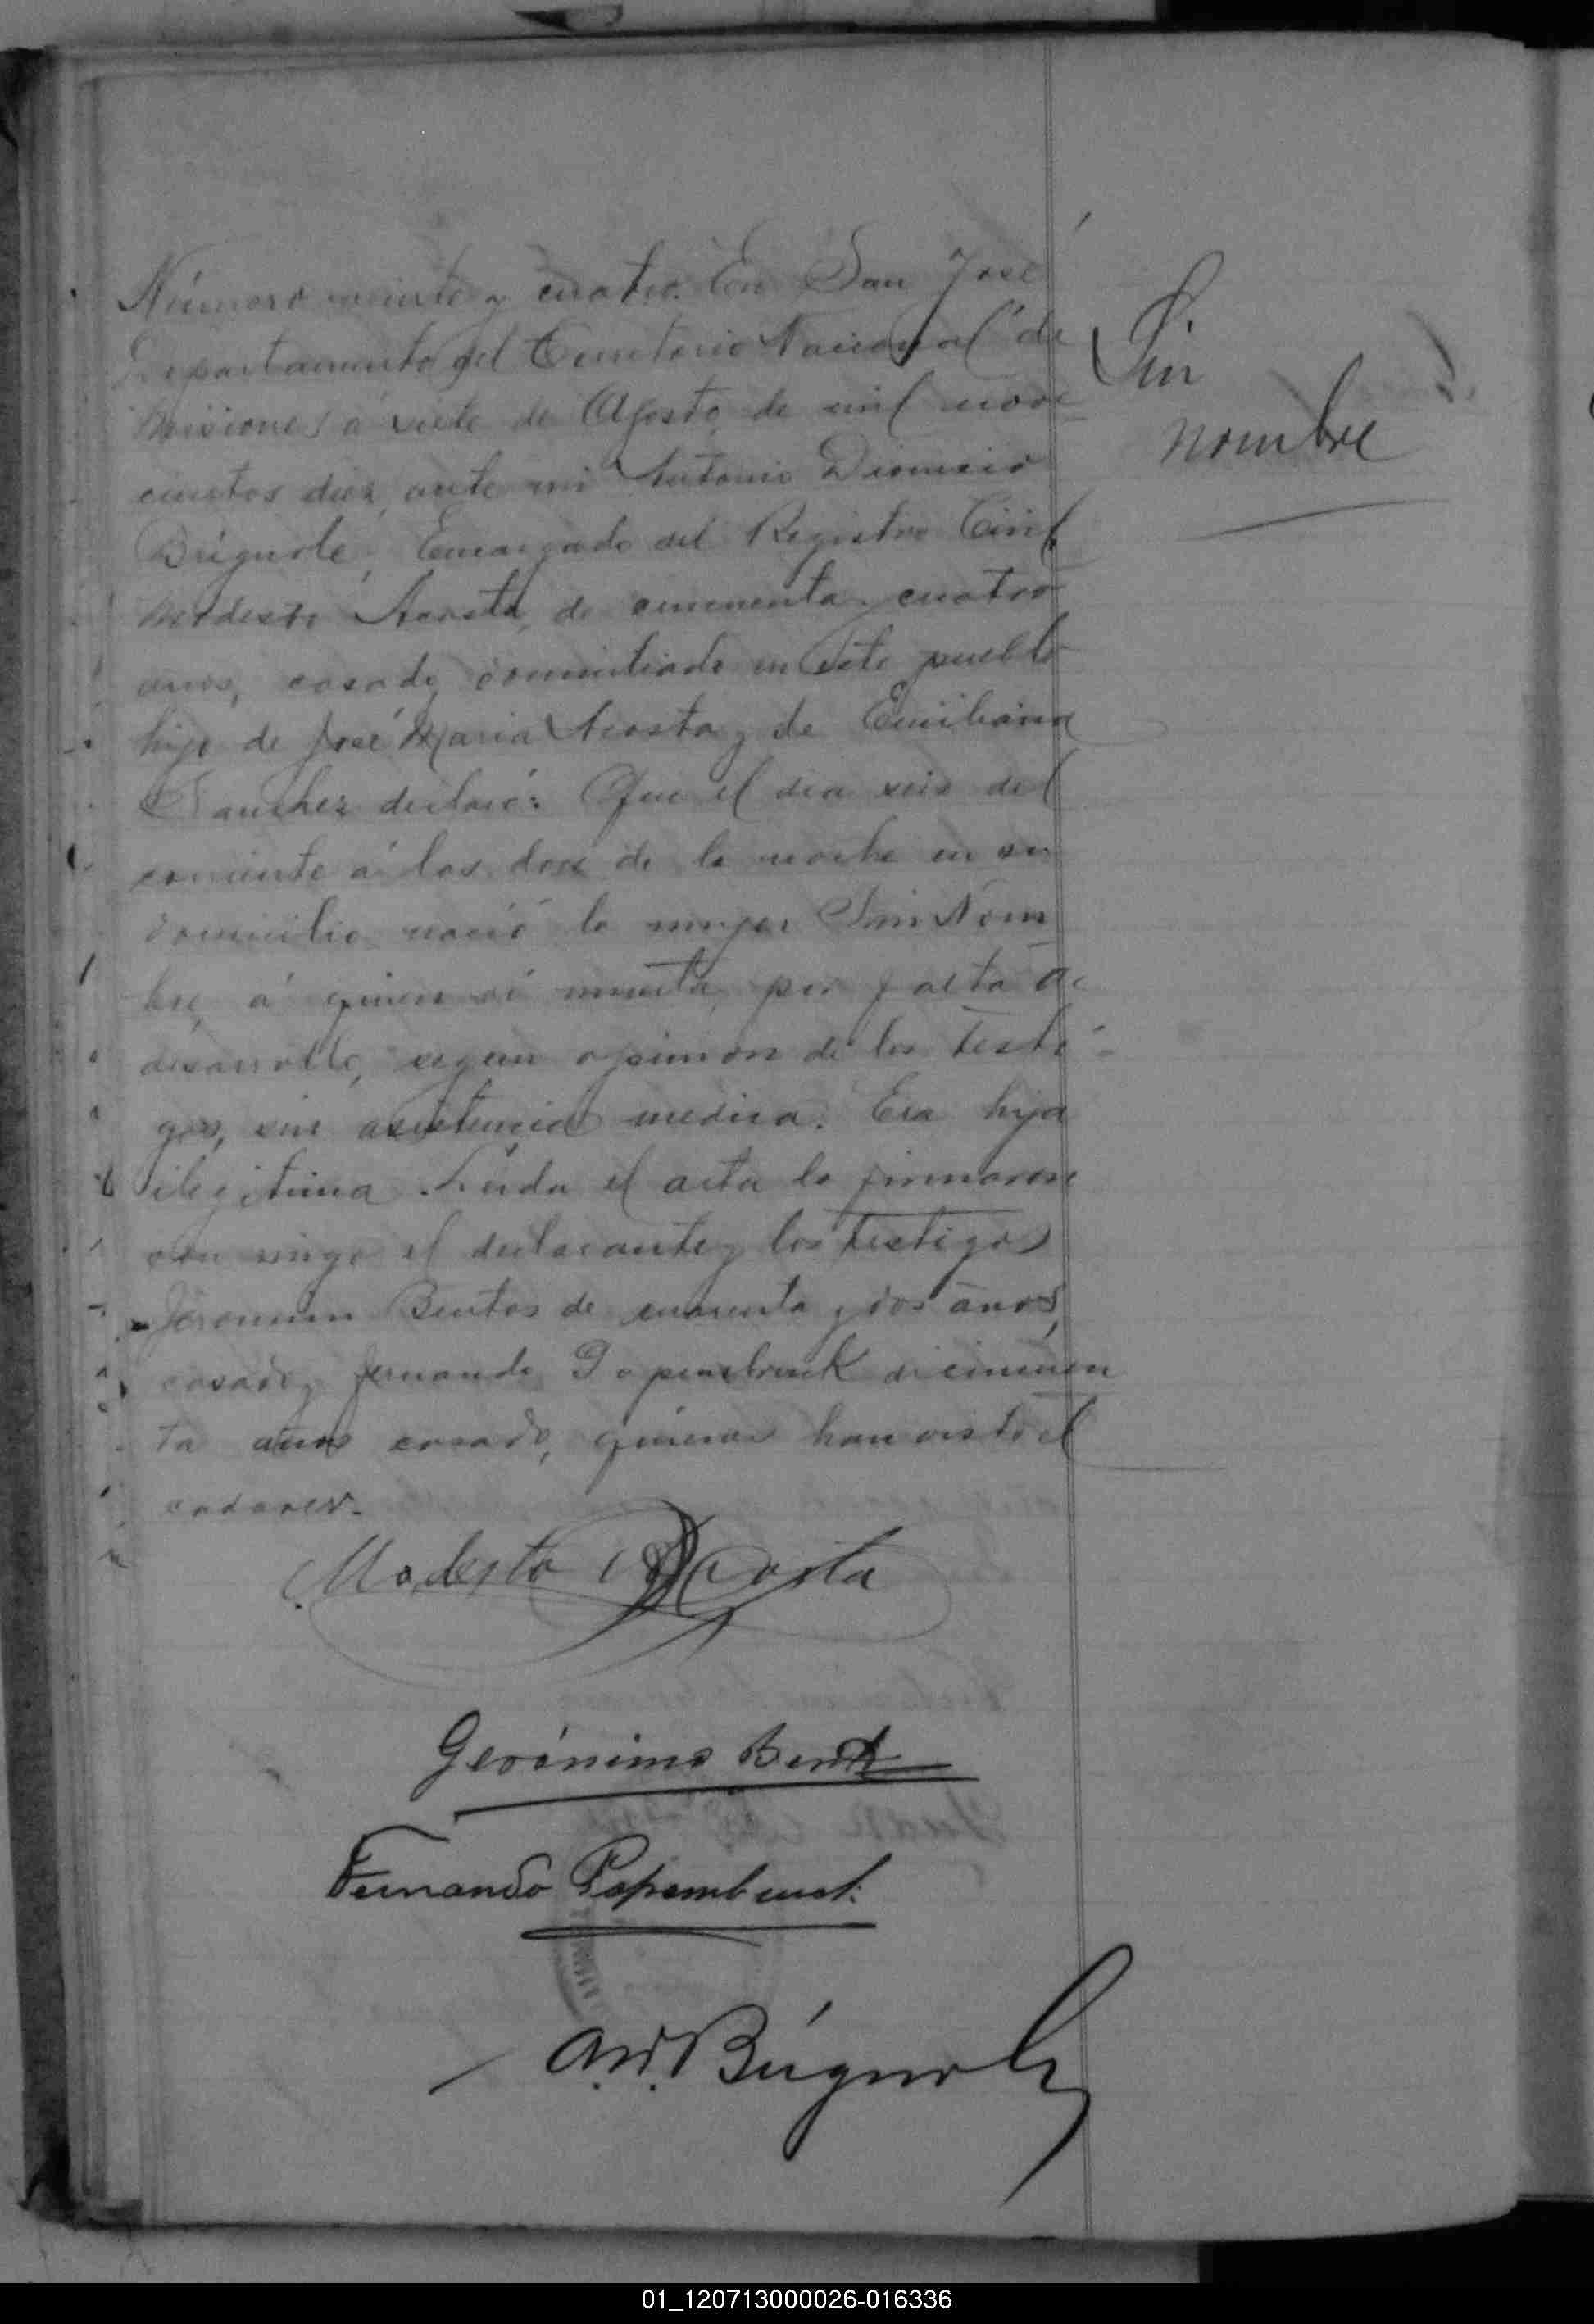 Número veinte y cuatro. En San José
Departamento del Territorio Nacional de
Misiones á siete de Agosto de mil nove
cientos diez, ante mi Antonio Dionisio
Brignole, Encargado del Registro Civil
Modesto Acosta, de cincuenta y cuatro
años, casado, domiciliado en este pueblo
hijo de José Maria Acosta y de Emiliana
Sanchez declaró: Que el dia seis del
corriente á las doce de la noche en su
domicilio nació la mujer Sin Nom
bre, á quien dió muerta, por falta de
desarrollo, segun opinion de los testi-
gos, sin asistencia medica. Era hija
ilegitima. Leida el acta la firmaron
con migo el declarante y los testigos
Jeronimo Bentos de cuarenta y dos años,
casado, y Fernando Papembrock de cincuen
ta años casado, quienes han visto el
cadaver.
Sin
nombre
Modesto Acosta
Gerónimo Bento
Fernando
A. D. Brignole
01_120713000026-016336